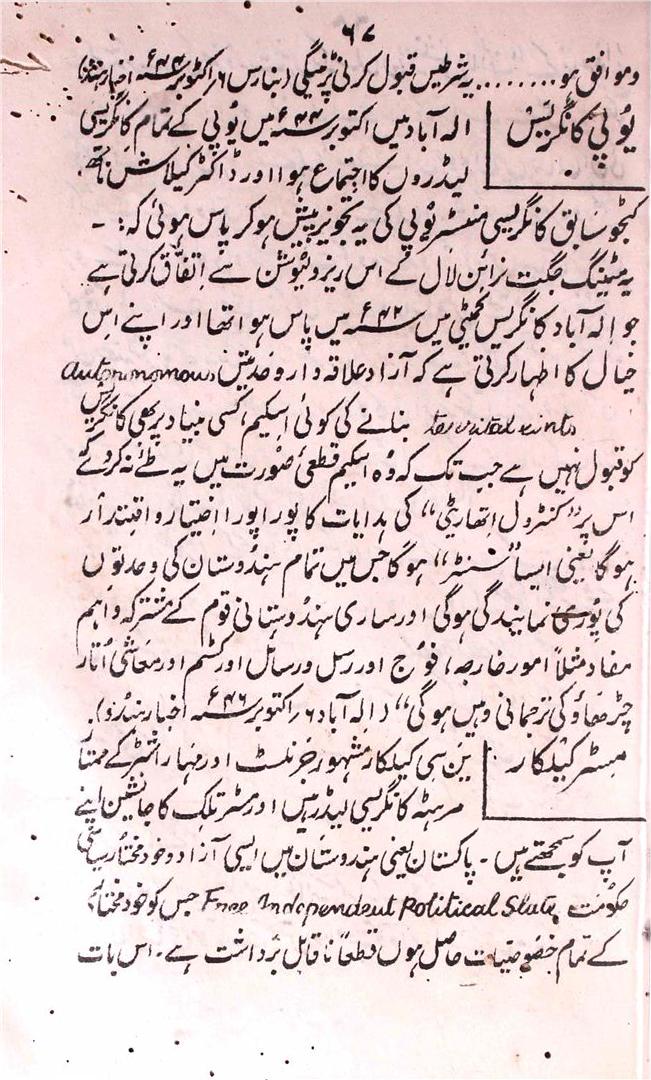 ۶۷
و موافق ہو........ یہ شرطیں قبول کرنی پڑینگی (بنارس ۶ اکتوبر ۴۴ء اخبار ہندو)
یوپی کانگریس
الہ آباد میں اکتوبر ۴۴ء میں یوپی کے تمام کانگریسی
لیڈروں کا اجتماع ہوا اور ڈاکٹر کیلاش ناتھ
کٹجو سابق کانگریسی منسٹر یوپی کی یہ تجویز پیش ہو کر پاس ہوئی کہ:-
یہ مٹینگ جگت نرائن لال کے اس ریزولیوشن سے اتفاق کرتی ہے
جو الہ آباد کانگریس کمیٹی میں ۴۲ء میں پاس ہوا تھا اور اپنے اس
خیال کا اظہار کرتی ہے کہ آزاد علاقہ وار وحدتیں Autonomous
territorial units بنانے کی کوئی اسکیم کسی بنیاد پر بھی کانگریس
کو قبول نہیں ہے جب تک کہ وہ اسکیم قطعی صورت میں یہ طے نہ کردے کہ
اس پر "کنٹرول اتھارٹی" کی ہدایات کا پورا پورا اختیار و اقتدار
ہوگا یعنی ایسا "سنٹر" ہوگا جس میں تمام ہندوستان کی وحدتوں
کی پوری نمایندگی ہوگی اور ساری ہندوستانی قوم کے مشترکہ و اہم
مفاد مثلاً امور خارجہ، فوج اور رسل و رسائل اور کسٹم اور معاشی اتار
چڑھاؤ کی ترجمانی وہیں ہوگی" (الہ آباد ۶ اکتوبر ۴۶ء اخبار ہندو)۔
مسٹر کیلکار
ین سی کیلکار مشہور جرنلٹ اور مہاراشٹر کے ممتاز
مرہٹہ کانگریسی لیڈر ہیں اور مسٹر تلک کا جانشین اپنے
آپ کو سمجھتے ہیں۔ پاکستان یعنی ہندوستان میں ایسی آزاد و خود مختار سیاسی
حکومت Free Independent Political State جس کو خود مختاری
کے تمام خصوصیات حاصل ہوں قطعاً ناقابل برداشت ہے۔ اس بات